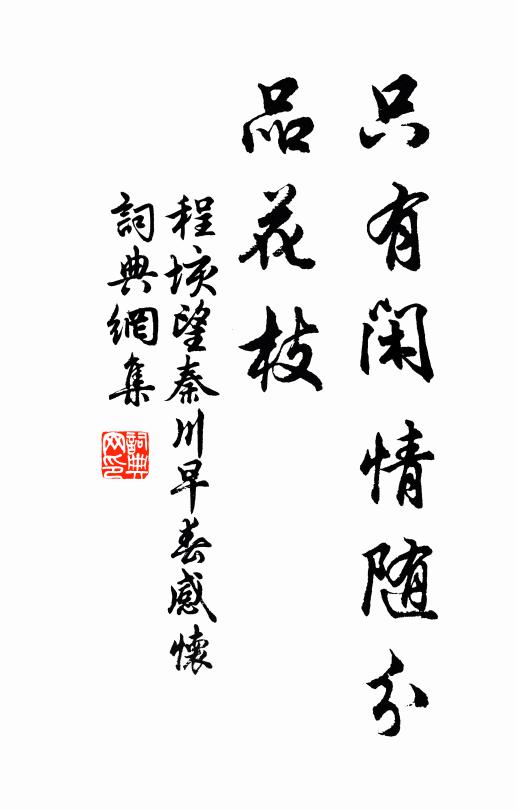 只有閑情随分
品花枝
程垓望秦川早春感懷
詞典網集
詞典网印